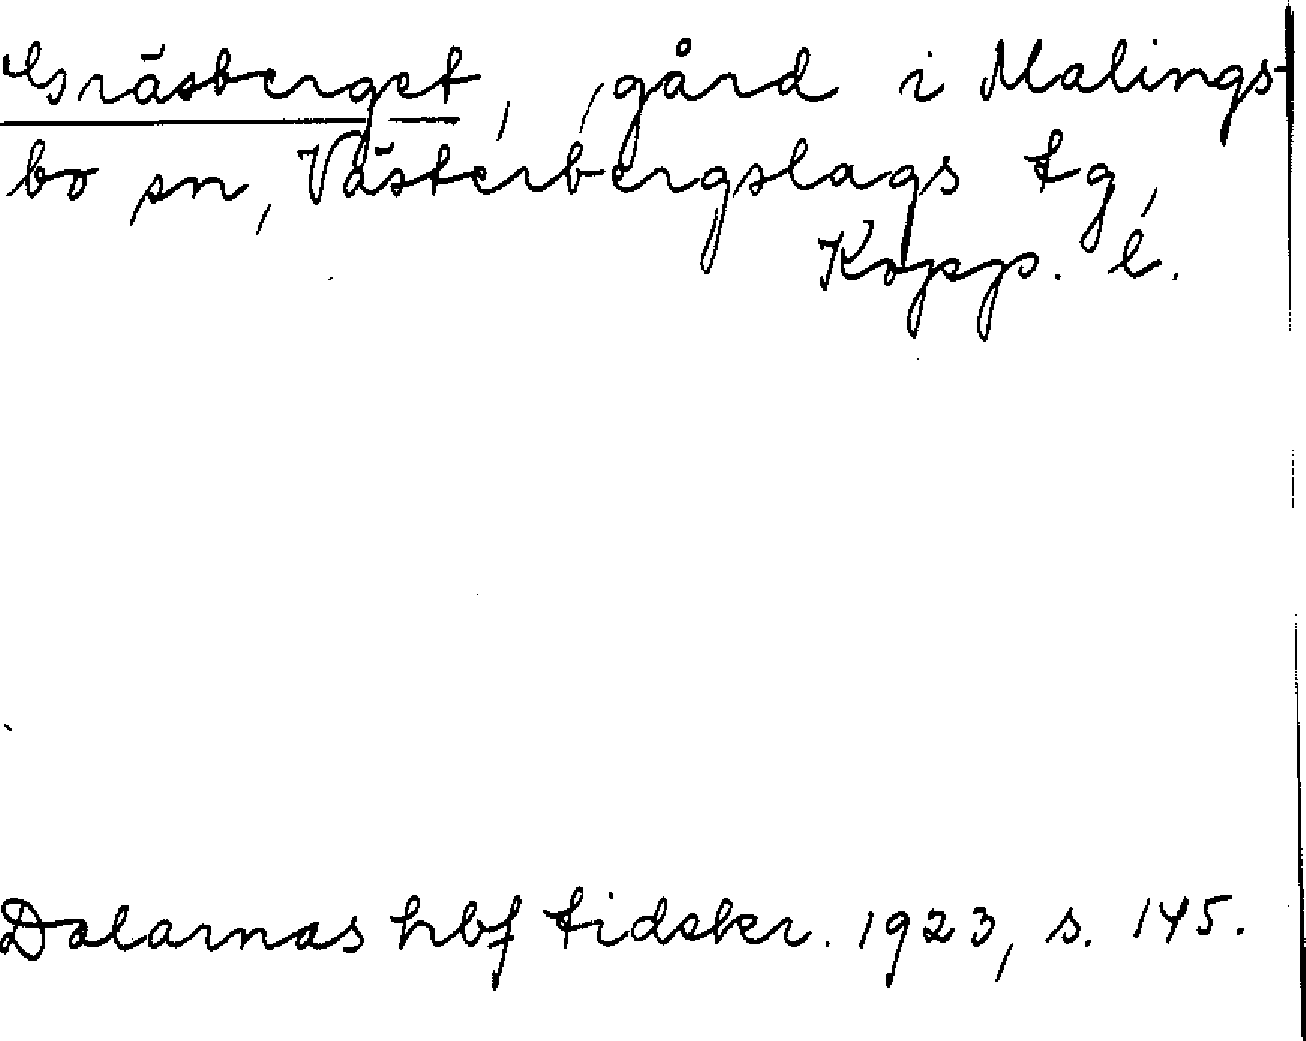 Gräsberget, gård i Malings-
bo sn, Västerbergslags tg,
Kopp. l.
Dalarnas hbf tidskr. 1923, s. 145.